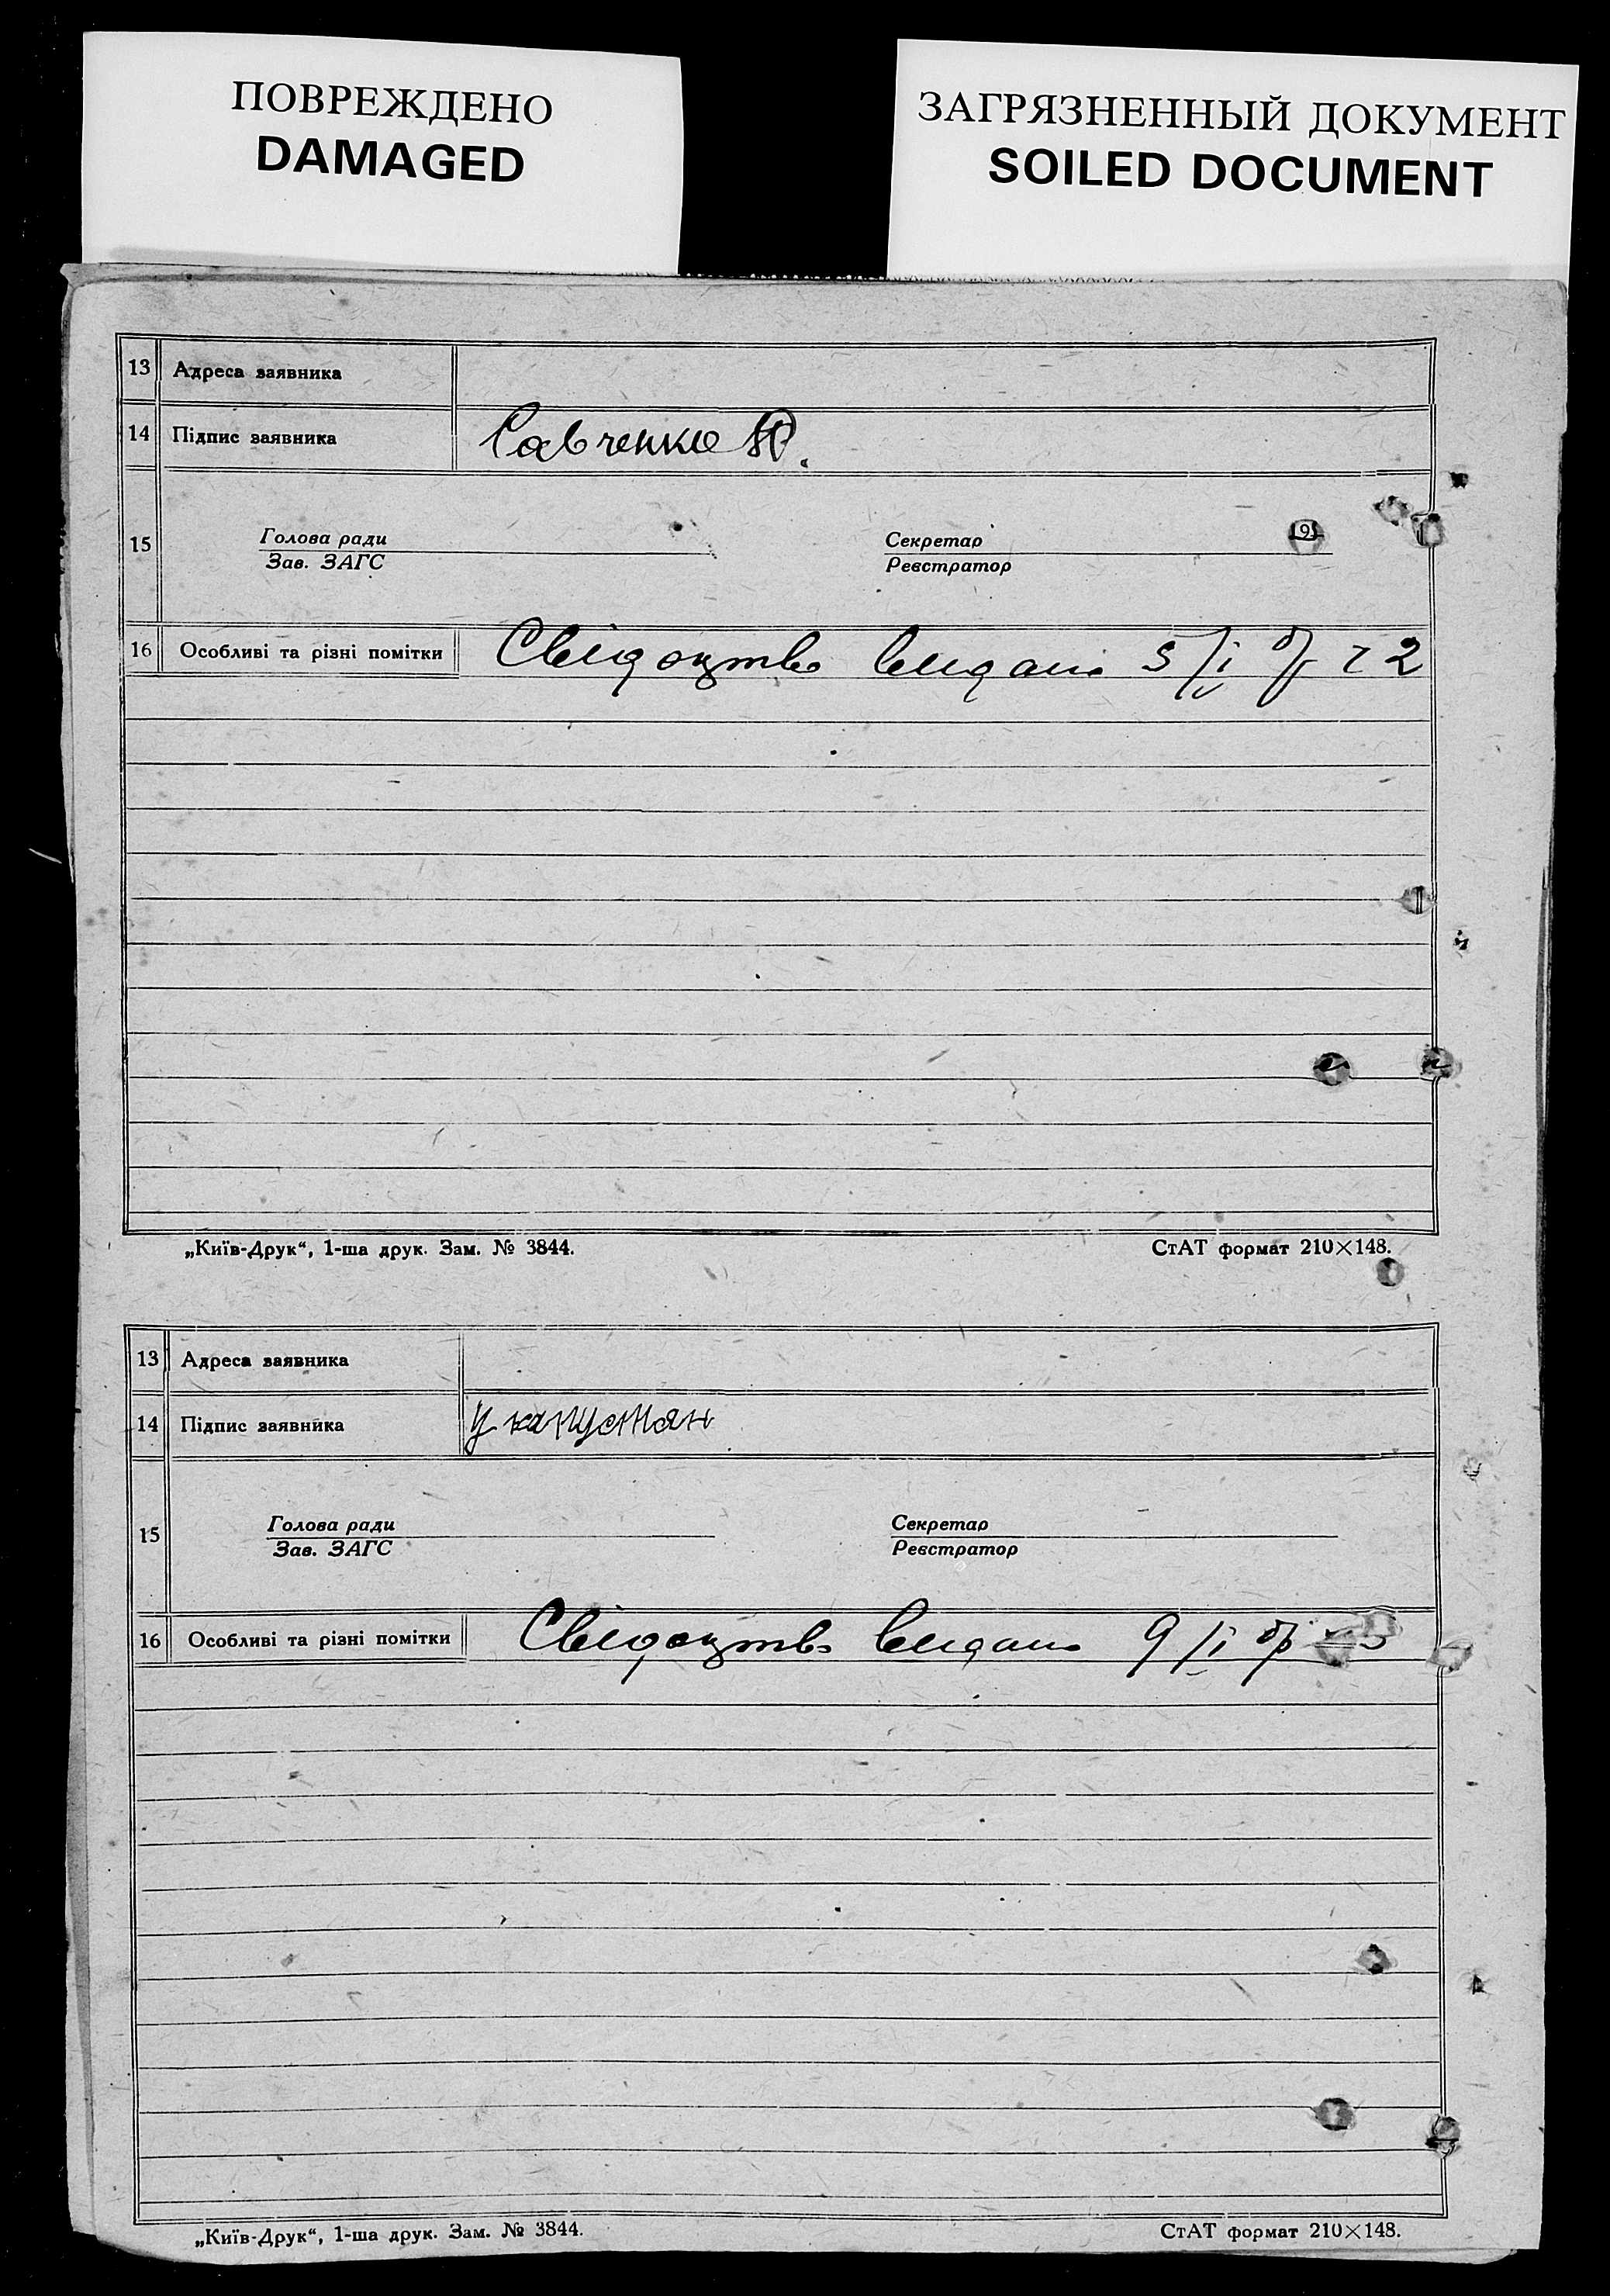 ПОВРЕЖДЕНО
DAMAGED
ЗАГРЯЗНЕННЫЙ ДОКУМЕНТ
SOILED DOCUMENT
13 Адреса заявника
14 Підпис заявника Савченко
15 Голова ради Секретар
Зав. ЗАГС Реєстратор
16 Особливі та різні помітки Свідоцтво видано 5/I № 2
„Київ-Друк“, 1-ша друк. Зам. № 3844. СтАТ формат 210×148.
13 Адреса заявника
14 Підпис заявника У капустян
15 Голова ради Секретар
Зав. ЗАГС Реєстратор
16 Особливі та різні помітки Свідоцтво видано 9/I
„Київ-Друк“, 1-ша друк. Зам. № 3844. СтАТ формат 210×148.